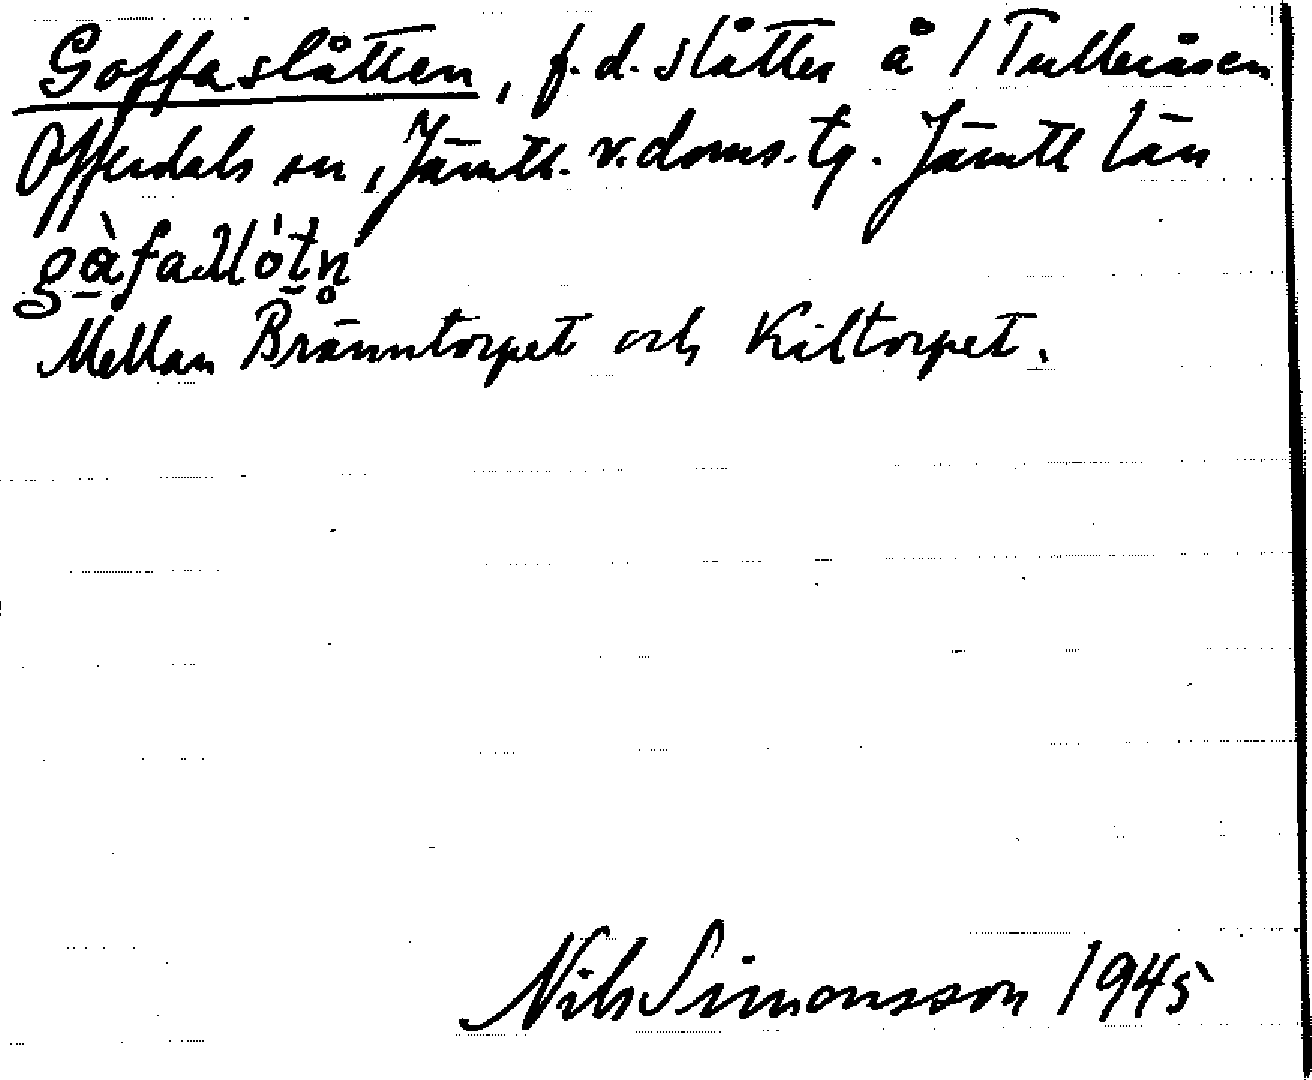 Goffaslåtten, f.d. slåtter å / Tulleråsen
Offerdals sn, Jämtl. v. doms. tg. Jämtl län
gàfaʃʃlótn̥
Mellan Bränntorpet och Kiltorpet.
Nils Simonsson 1945